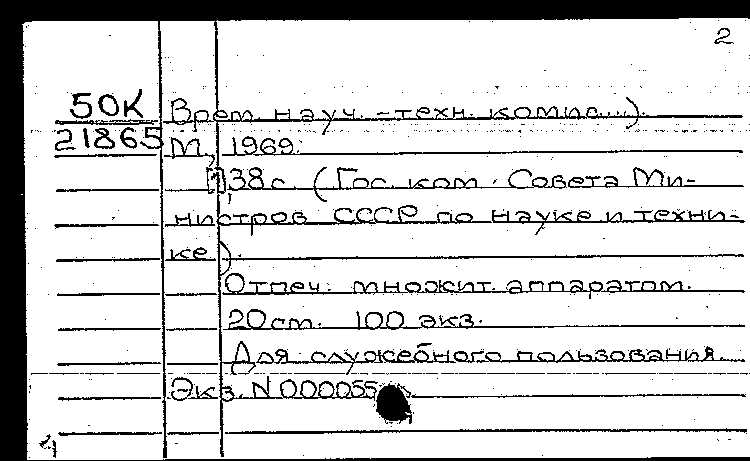 2
50К Врем. науч.-техн. комис...).
21865 М., 1969.
[1], 38 с. (Гос. ком. Совета Ми-
нистров СССР по науке и техни-
ке).
Отпеч. множит. аппаратом.
20 см. 100 экз.
Для служебного пользования.
Экз. N 000055